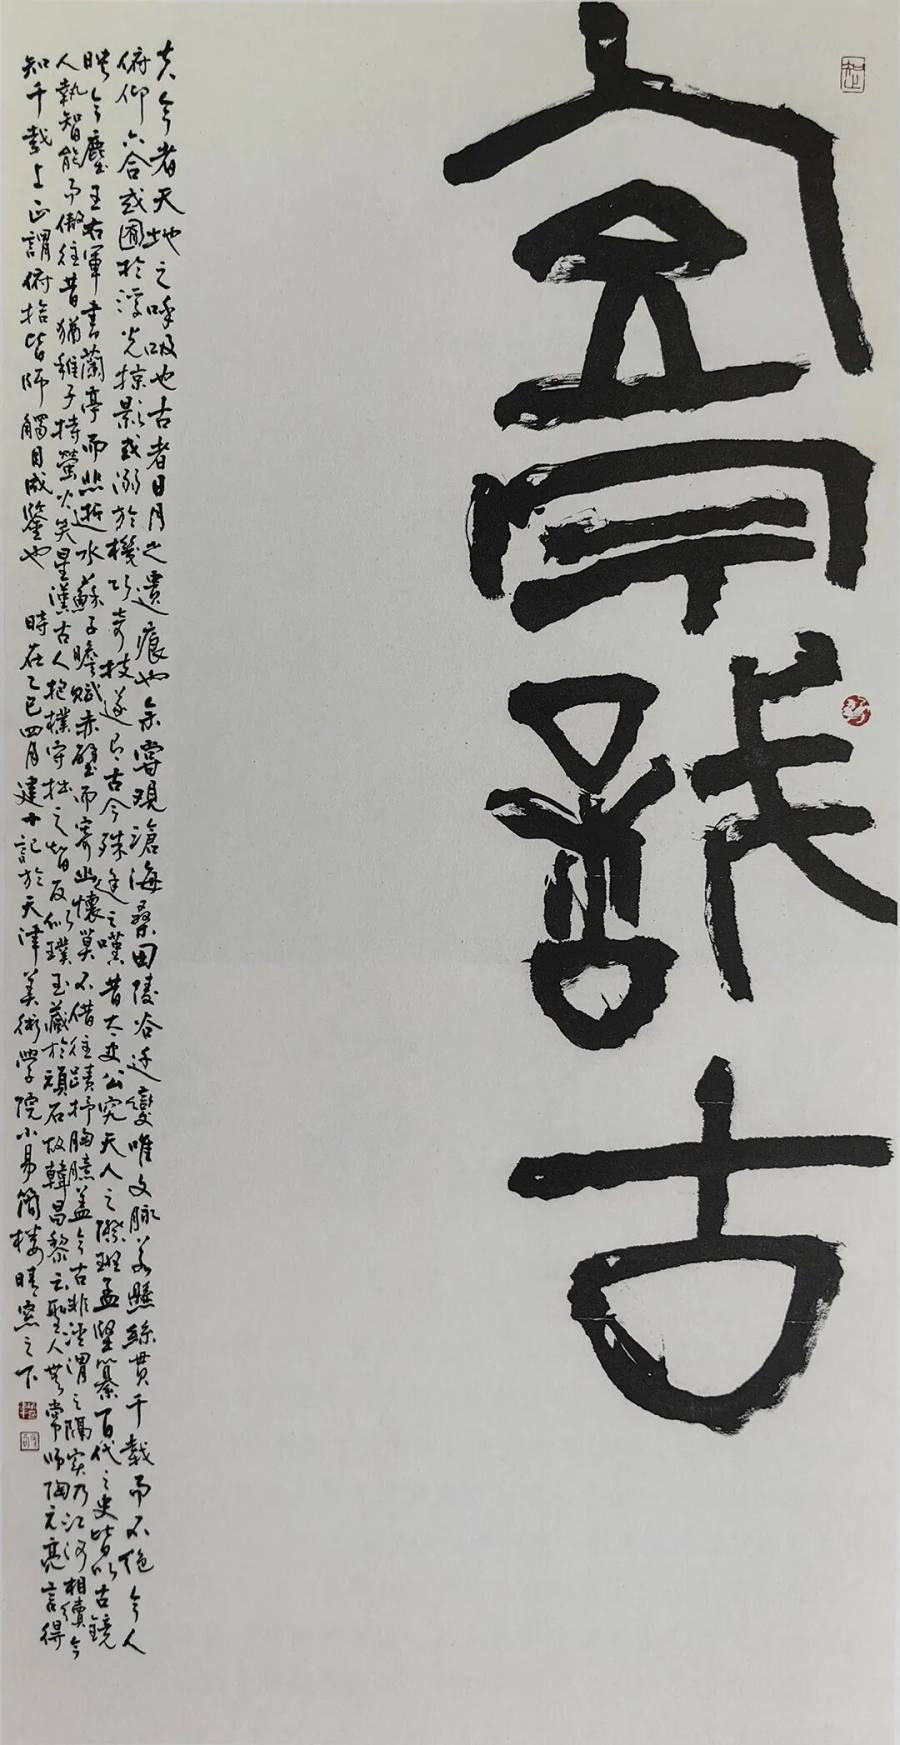 古
夫今者天地之呼吸也古者日月之遺痕也余嘗觀滄海桑田陵谷遷變唯文脈若懸絲貫千載而不絕今人
俯仰六合或囿於浮光掠影或溺於機巧奇技遂有古今殊途之嘆昔太史公究天人之際班孟堅纂百代之史皆以古鏡
映今塵王右軍書蘭亭而悲逝水蘇子瞻賦赤壁而寄幽懷莫不借往蹟抒胸臆蓋今古非涇渭之隔实乃江河相續今
人執智能而傲往昔猶稚子持螢火笑星漢古人抱樸守拙之智反似璞玉藏於頑石故韓昌黎云聖人無常師陶元亮言得
知千載上正謂俯拾皆師觸目成鑒也 時在乙巳四月建記於天津美術學院小易簡樓晴窗之下